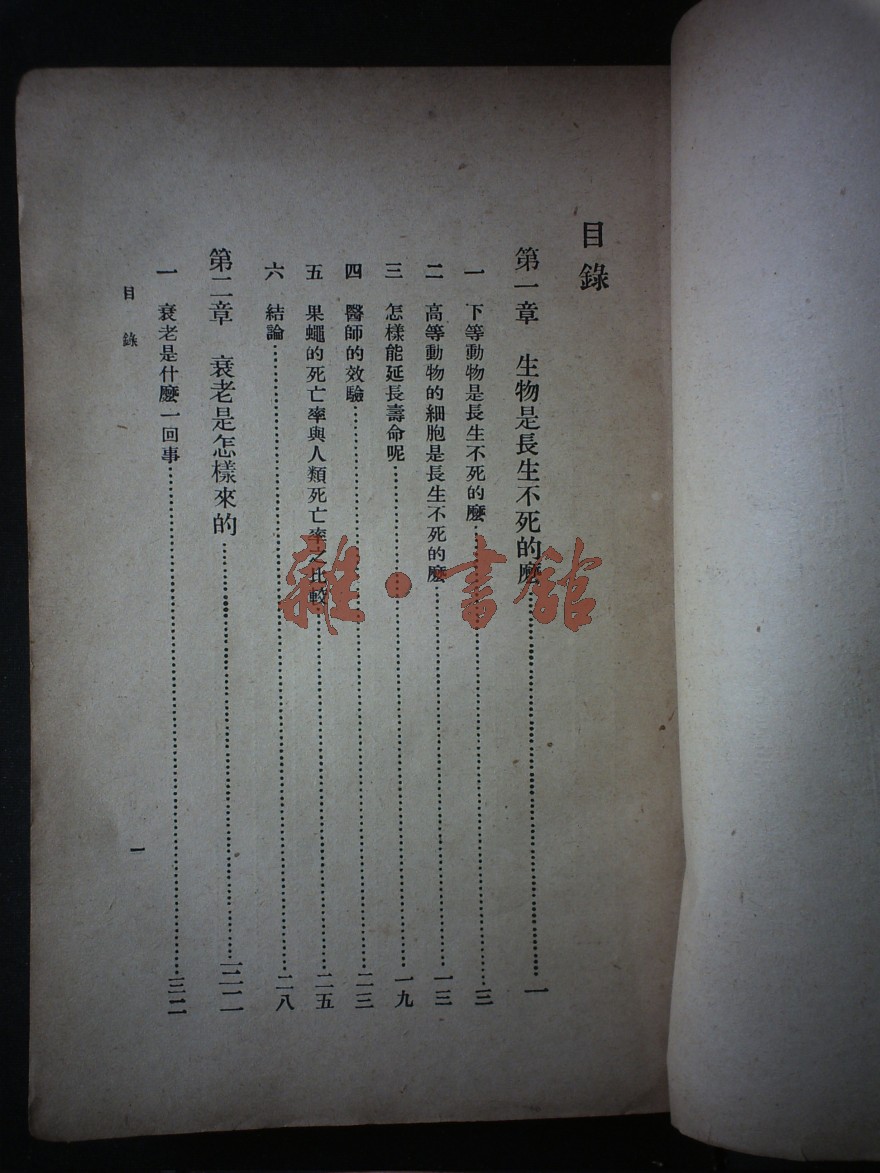 目錄
第一章 生物是長生不死的麼……一
一 下等動物是長生不死的麼……三
二 高等動物的細胞是長生不死的麼……一三
三 怎樣能延長壽命呢……一九
四 醫師的效驗……二三
五 果蠅的死亡率與人類死亡率之比較……二五
六 結論……二八
第二章 衰老是怎樣來的……三二
一 衰老是什麼一回事……三二
目錄
一
雜·書館